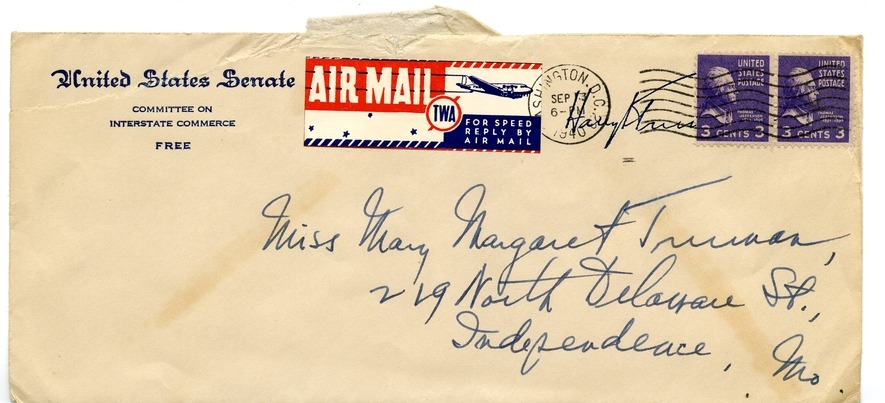 United States Senate
COMMITTEE ON
INTERSTATE COMMERCE
FREE
AIR MAIL
TWA
FOR SPEED
REPLY BY
AIR MAIL
WASHINGTON, D.C.
SEP 13
1940
Harry S Truman
UNITED
STATES
POSTAGE
THOMAS
JEFFERSON
3 CENTS 3
UNITED
STATES
POSTAGE
THOMAS
JEFFERSON
3 CENTS 3
Miss Mary Margaret Truman,
219 North Delaware St.,
Independence,
Mo.